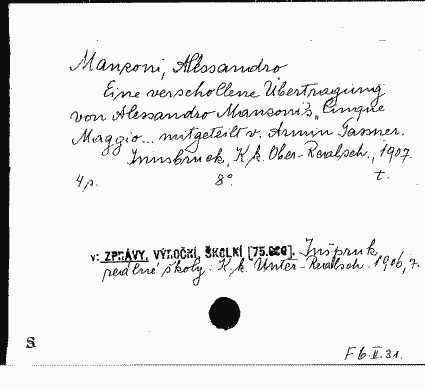 Manzoni, Alessandro
Eine verschollene Übertragung
von Alessandro Manzoni's „Cinque
Maggio... mitgeteilt v. Armin Gassner.
Innsbruck, K.k. Ober-Realsch., 1907.
4 p. 8°. t.
v: ZPRÁVY, VÝROČNÍ, ŠKOLNÍ [75.020]. Inšpruk
reálné školy: K.k. Unter-Realsch. 1906,7.
S
F 6.II.31.